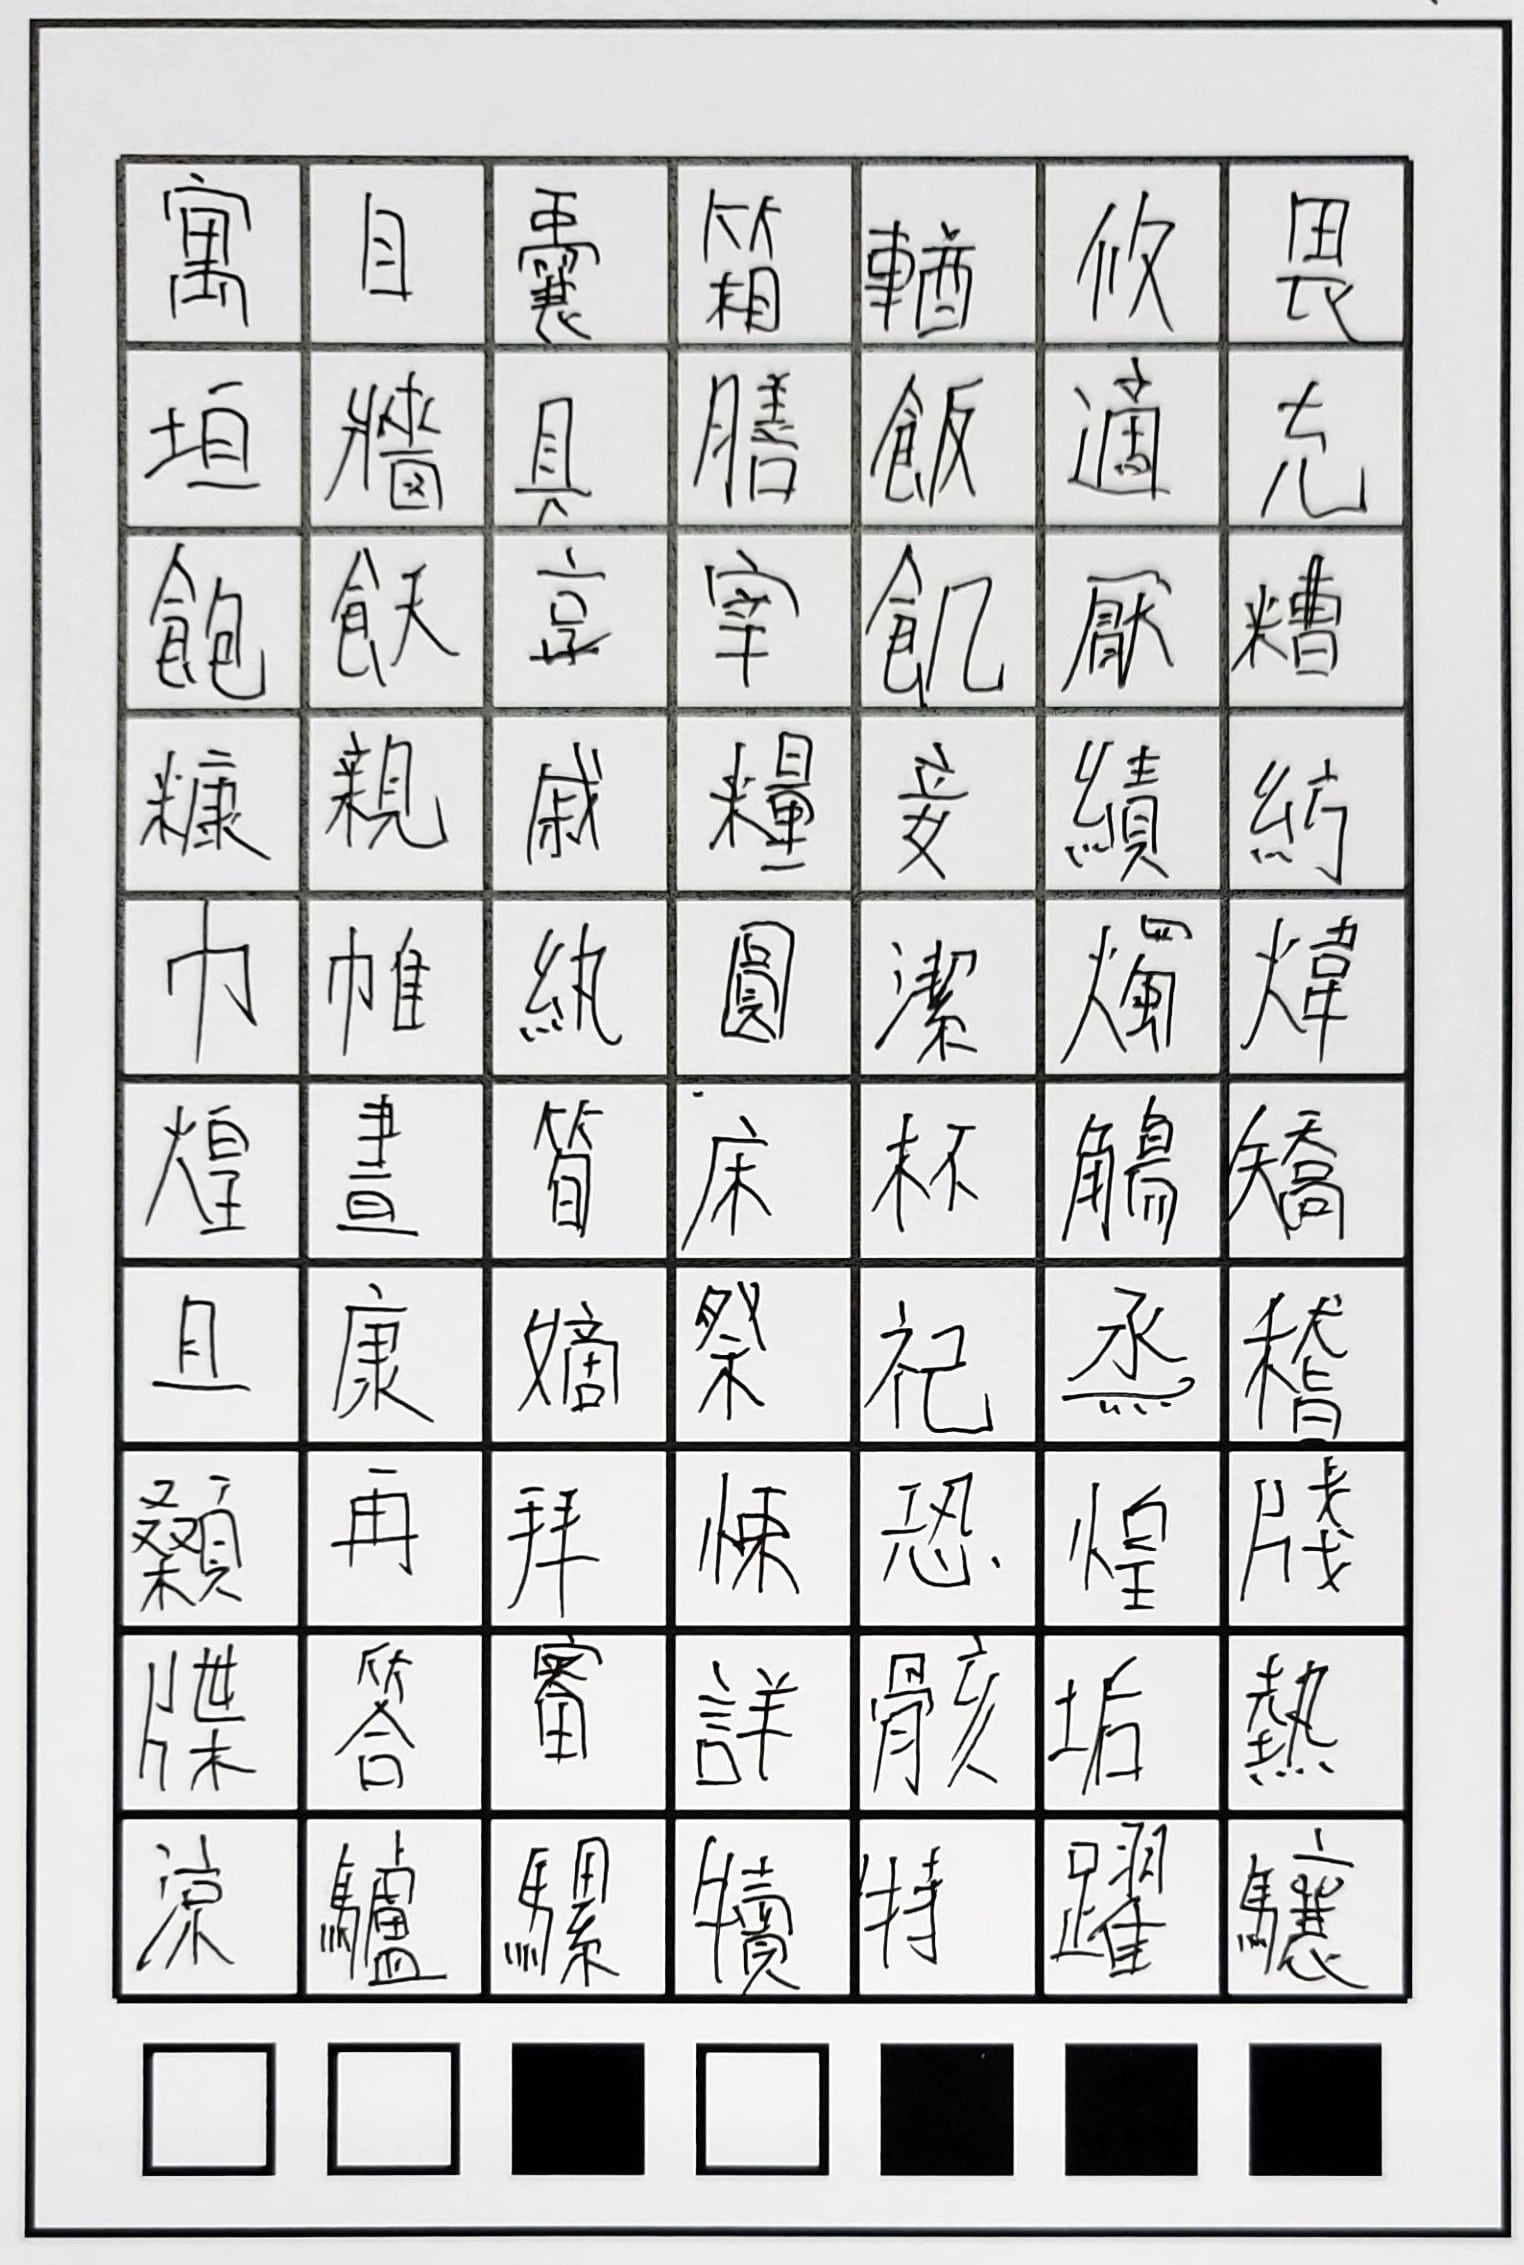 寓目囊箱輶攸畏
垣牆具膳飯適充
飽飫享宰飢厭糟
糠親戚糧妾績紡
巾帷紈圓潔煒
煌晝床杯觴矯
且康嫡祭祀烝稽
顙再拜悚恐煌牋
牒答審詳骸垢熱
涼驢騾犢特躍驤